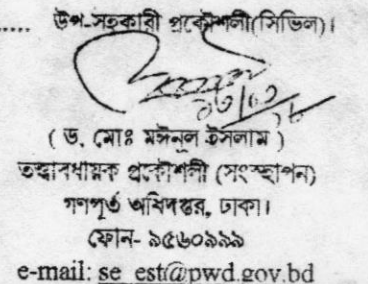 ..... উপ-সহকারী প্রকৌশলী(সিভিল)।
( ড. মোঃ মঈনুল ইসলাম )
তত্ত্বাবধায়ক প্রকৌশলী (সংস্থাপন)
গণপূর্ত অধিদপ্তর, ঢাকা।
ফোন- ৯৫৬০৯৯৯
e-mail: se_est@pwd.gov.bd